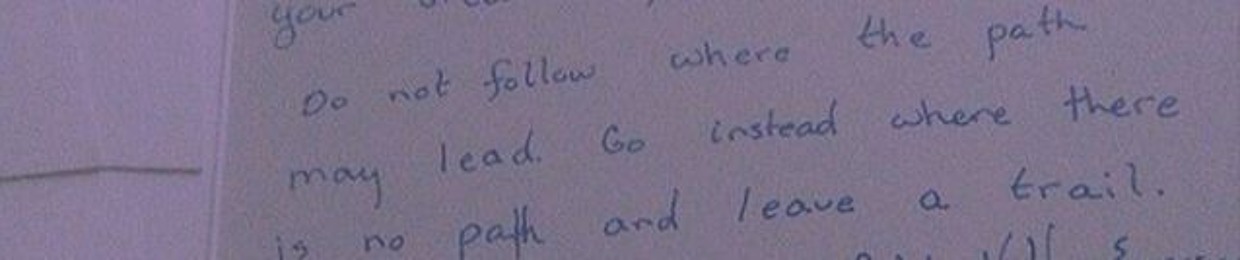 your
Do not follow where the path
may lead. Go instead where there
is no path and leave a trail.